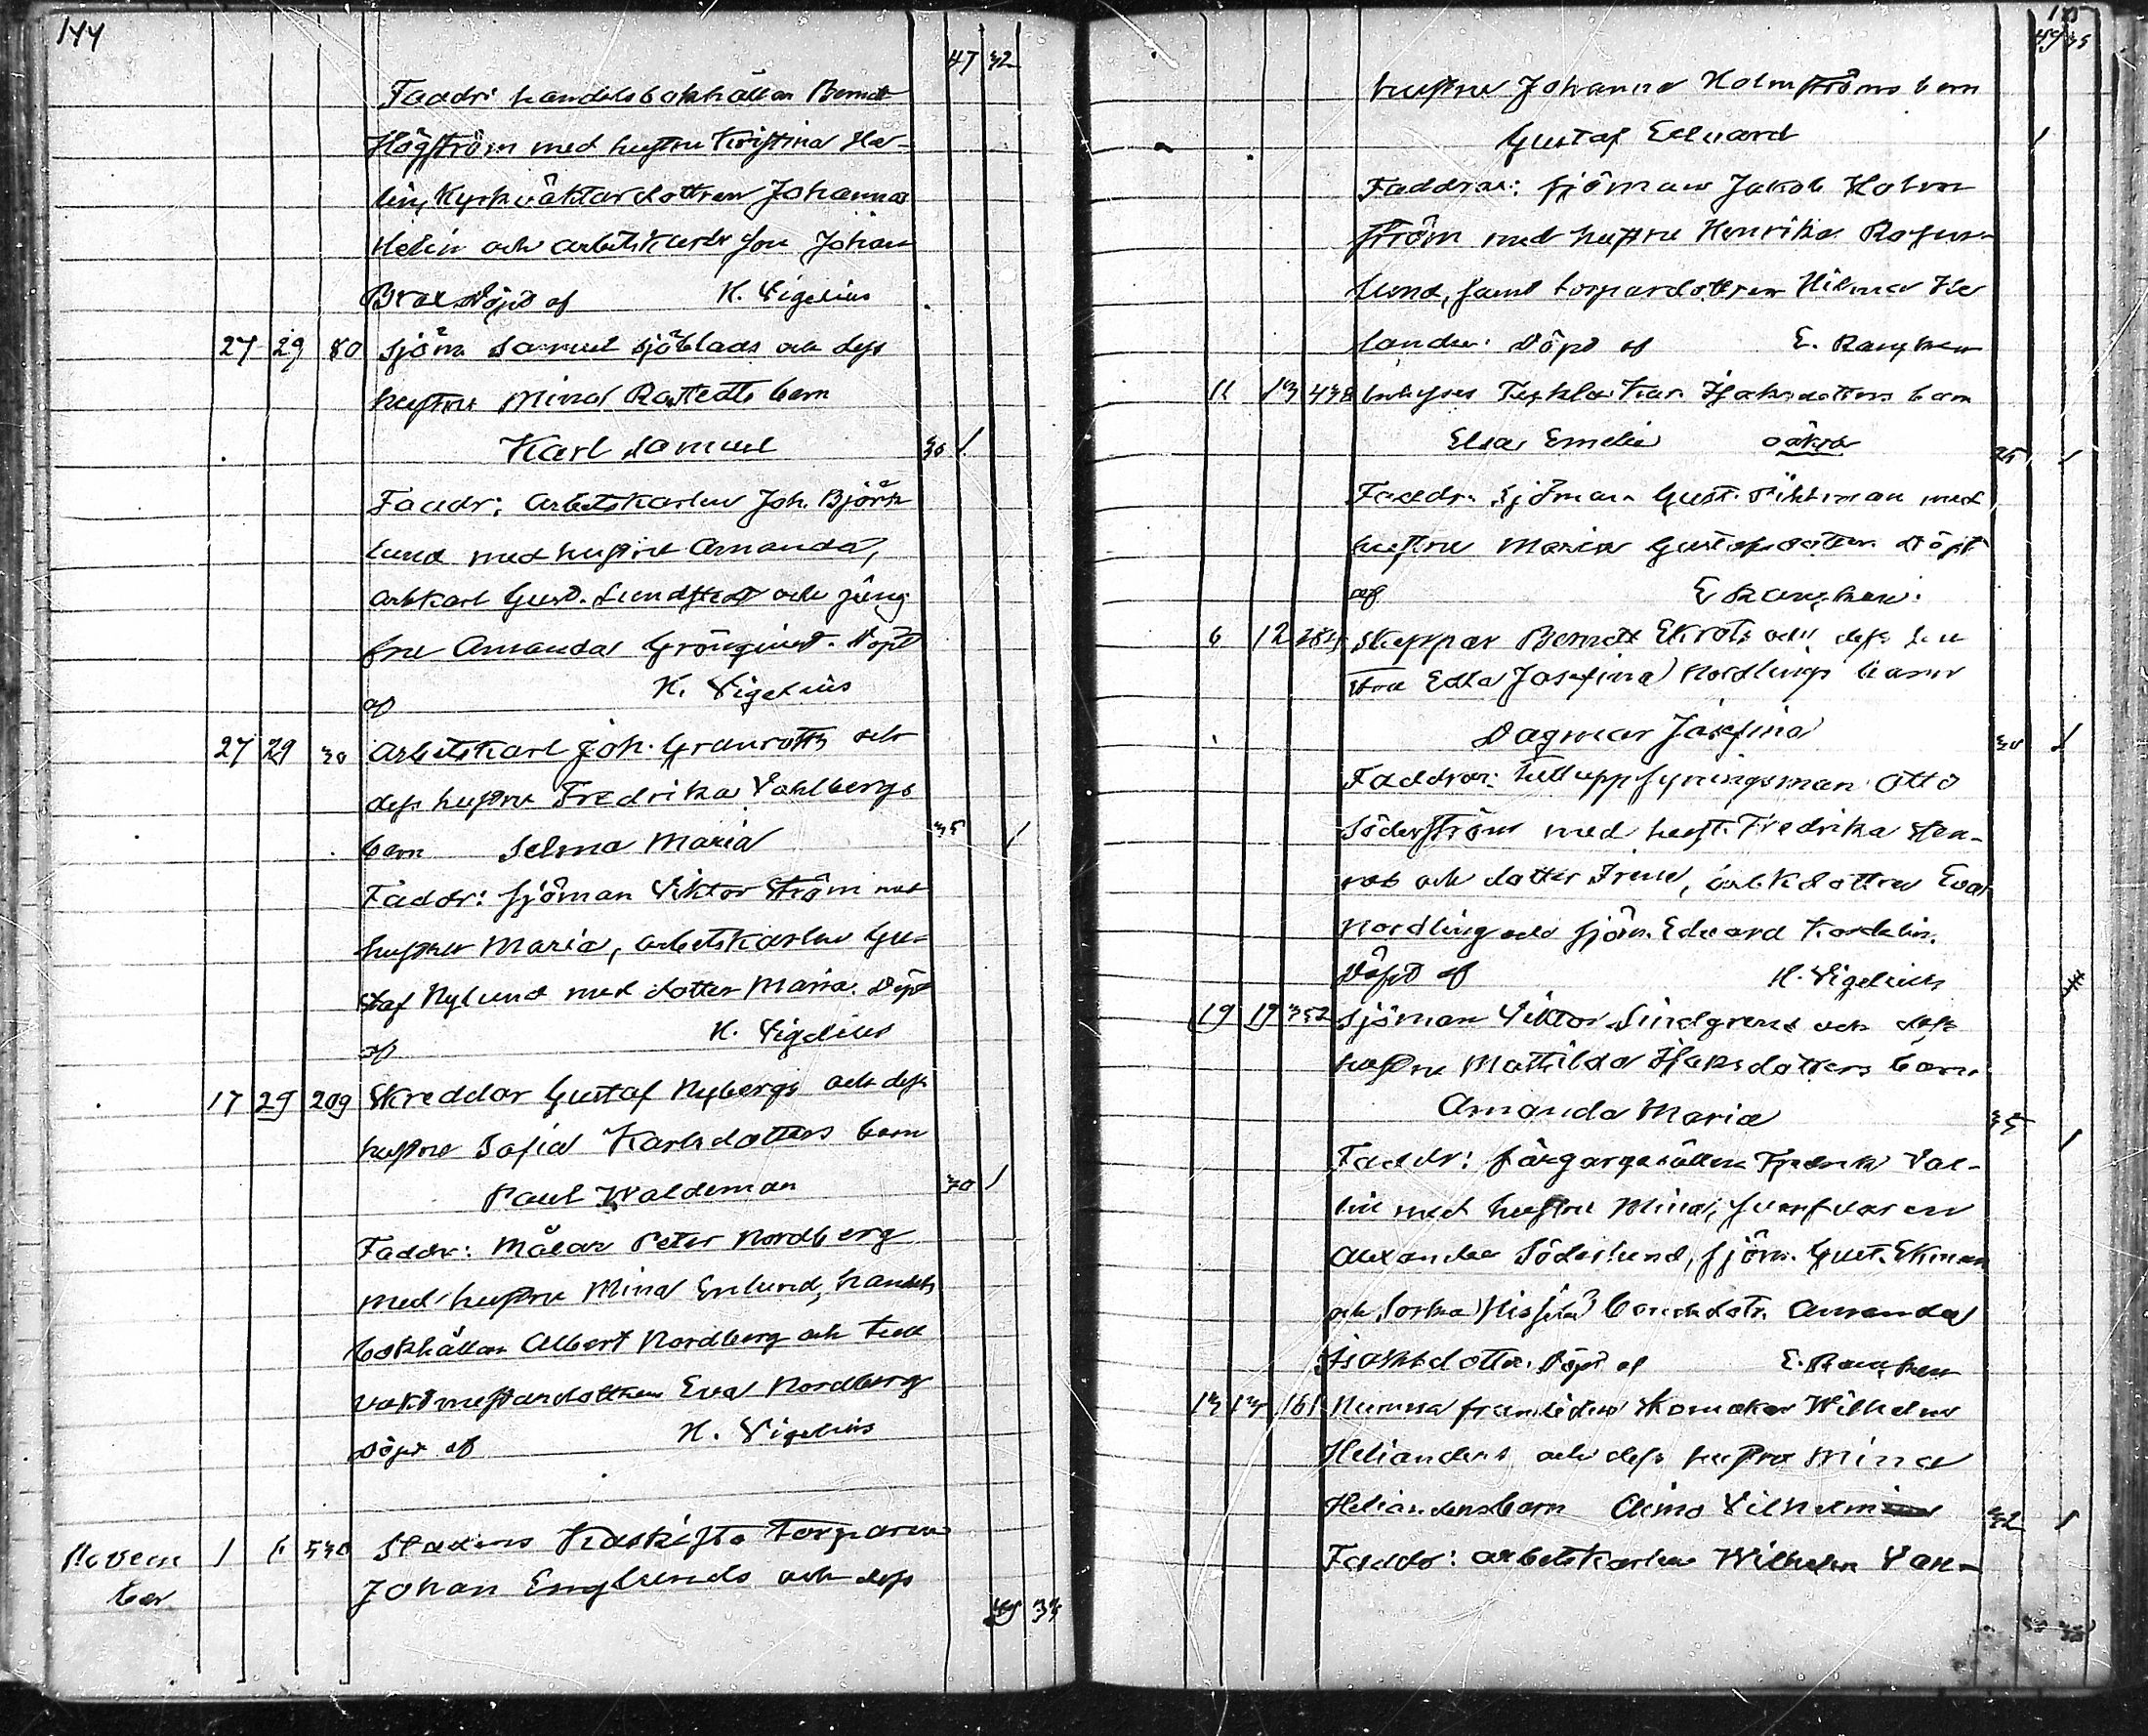 144
47 32
Faddr: handelsbokhållar Berndt
Högström med hustru Kristina He-
lin, Kyrkväktardottren Johanna
Helin och arbetskarls son Johan
Brax Döpt af K. Vigelius
27 29 80 Sjöm. Samuel Sjöblads och dess
hustru Mina Rostedts barn
Karl Samuel 30 /
Faddr: Arbetskarlen Joh. Björk
lund med hustru Amanda,
arbkarl Gust. Lundsted och jung
fru Amanda Grönqvist. Döpt
af K. Vigelius
27 29 30 Arbetskarl Joh. Granroths och
dess hustru Fredrika Dahlbergs
barn Selma Maria 35 /
Faddr: sjöman Viktor Ström med
hustru Maria, arbetskarlen Gu-
staf Nylund med dotter Maria. Döpt
af K. Vigelius
17 29 209 Skreddar Gustaf Nybergs och dess
hustru Sofia Karlsdotters barn
Paul Waldemar 30 /
Faddr: Målar Peter Nordberg
med hustru Mina Enlund, handels
bokhållar Albert Nordberg och tull
vaktmestardottren Eva Nordberg
Döpt af K. Vigelius
Novem 1 6 530 Stadens Kaskisto torparen
ber Johan Englunds och dess
49 33
145
49 33
hustru Johanna Holmströms barn
Gustaf Edvard /
Faddrar: sjöman Jakob Holm
ström med hustru Henrika Rosen-
lund, samt torpardottren Hilma He
lander. Döpt af E. Rancken
11 13 438 Inhyses Isaksdotters barn
Elsa Emelia oäkta 25 /
Faddr: Sjöman Gust. med
hustru Maria Gustafsdotter. Döpt
af E. Rancken.
6 12 Skeppar Berndt Ekroths och dess hu
stru Edla Josefina Nordlings barn
Dagmar Josefina 30 /
Faddrar: Tulluppsyningsman Otto
Söderström med hust. Fredrika
och dotter Irene, arbkdottren Eva
Nordling och sjöm. Edvard Kordelin.
Döpt af K. Vigelius
19 19 352 Sjöman Viktor Lindgrens och dess
hustru Mathilda Isaksdotters barn
Amanda Maria 35 /
Faddr: färgargesällen Fredrik Val-
lin med hustru Mina,
Alexander Söderlund, sjöm. Gust. Ekman
och bondedotr. Amanda
Isaksdotter. Döpt af E. Rancken
13 13 161 Numera framlidne Skomakar Wilhelm
Helianders och dess hustru Mina
Helianders barn Aimo Vilhelm 32 /
Faddr: arbetskarlen Wilhelm